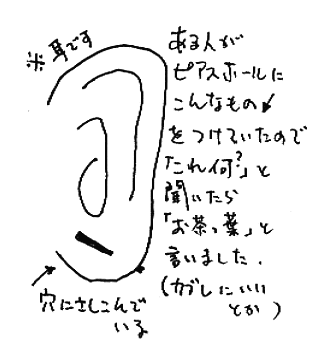 ※耳です
ある人が
ピアスホールに
こんなもの↙
をつけていたので
「これ何?」と
聞いたら
「お茶っ葉」と
言いました.
(カブレにいい
とか)
穴にさしこんで
いる